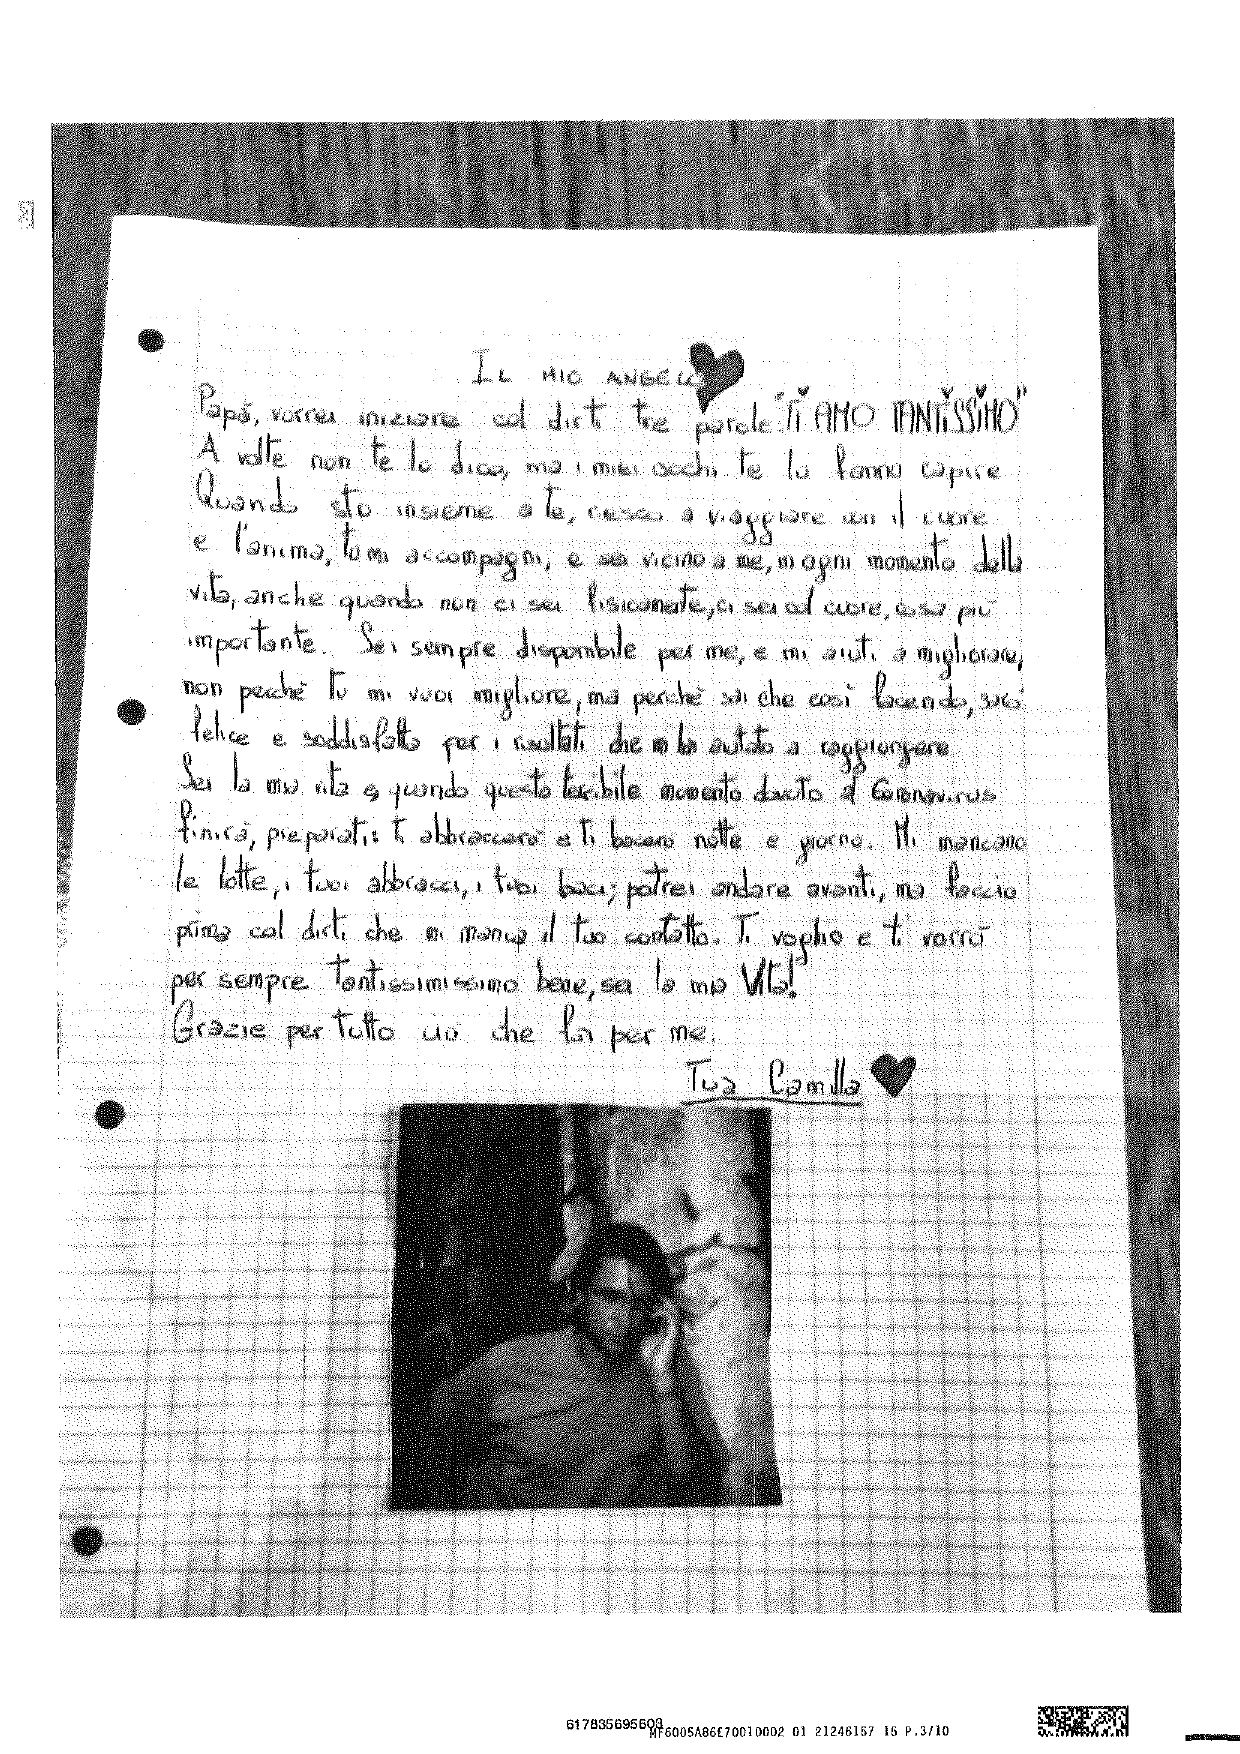 IL MIO ANGELO
Papà, vorrei iniziare col dirti tre parole "TI AMO TANTISSIMO"
A volte non te lo dico, ma i miei occhi te lo fanno capire
Quando sto insieme a te, riesco a viaggiare con il cuore
e l'anima, tu mi accompagni, e sei vicino a me, in ogni momento della
vita, anche quando non ci sei fisicamente, ci sei col cuore, cosa più
importante. Sei sempre disponibile per me, e mi aiuti a migliorare,
non perché Tu mi vuoi migliore, ma perché sai che così facendo, sarò
felice e soddisfatto per i risultati che mi hai aiutato a raggiungere
Sei la mia vita e quando questo terribile momento dovuto al Coronavirus
finirà, preparati: ti abbraccerò e ti bacerò notte e giorno. Mi mancano
le lotte, i tuoi abbracci, i tuoi baci; potrei andare avanti, ma faccio
prima col dirti che mi manca il tuo contatto. Ti voglio e ti vorrò
per sempre tantissimissimo bene, sei la mia Vita!
Grazie per tutto ciò che fai per me.
Tua Camilla
617835695609
MF6005A86E70010002 01 21246157 15 P.3/10